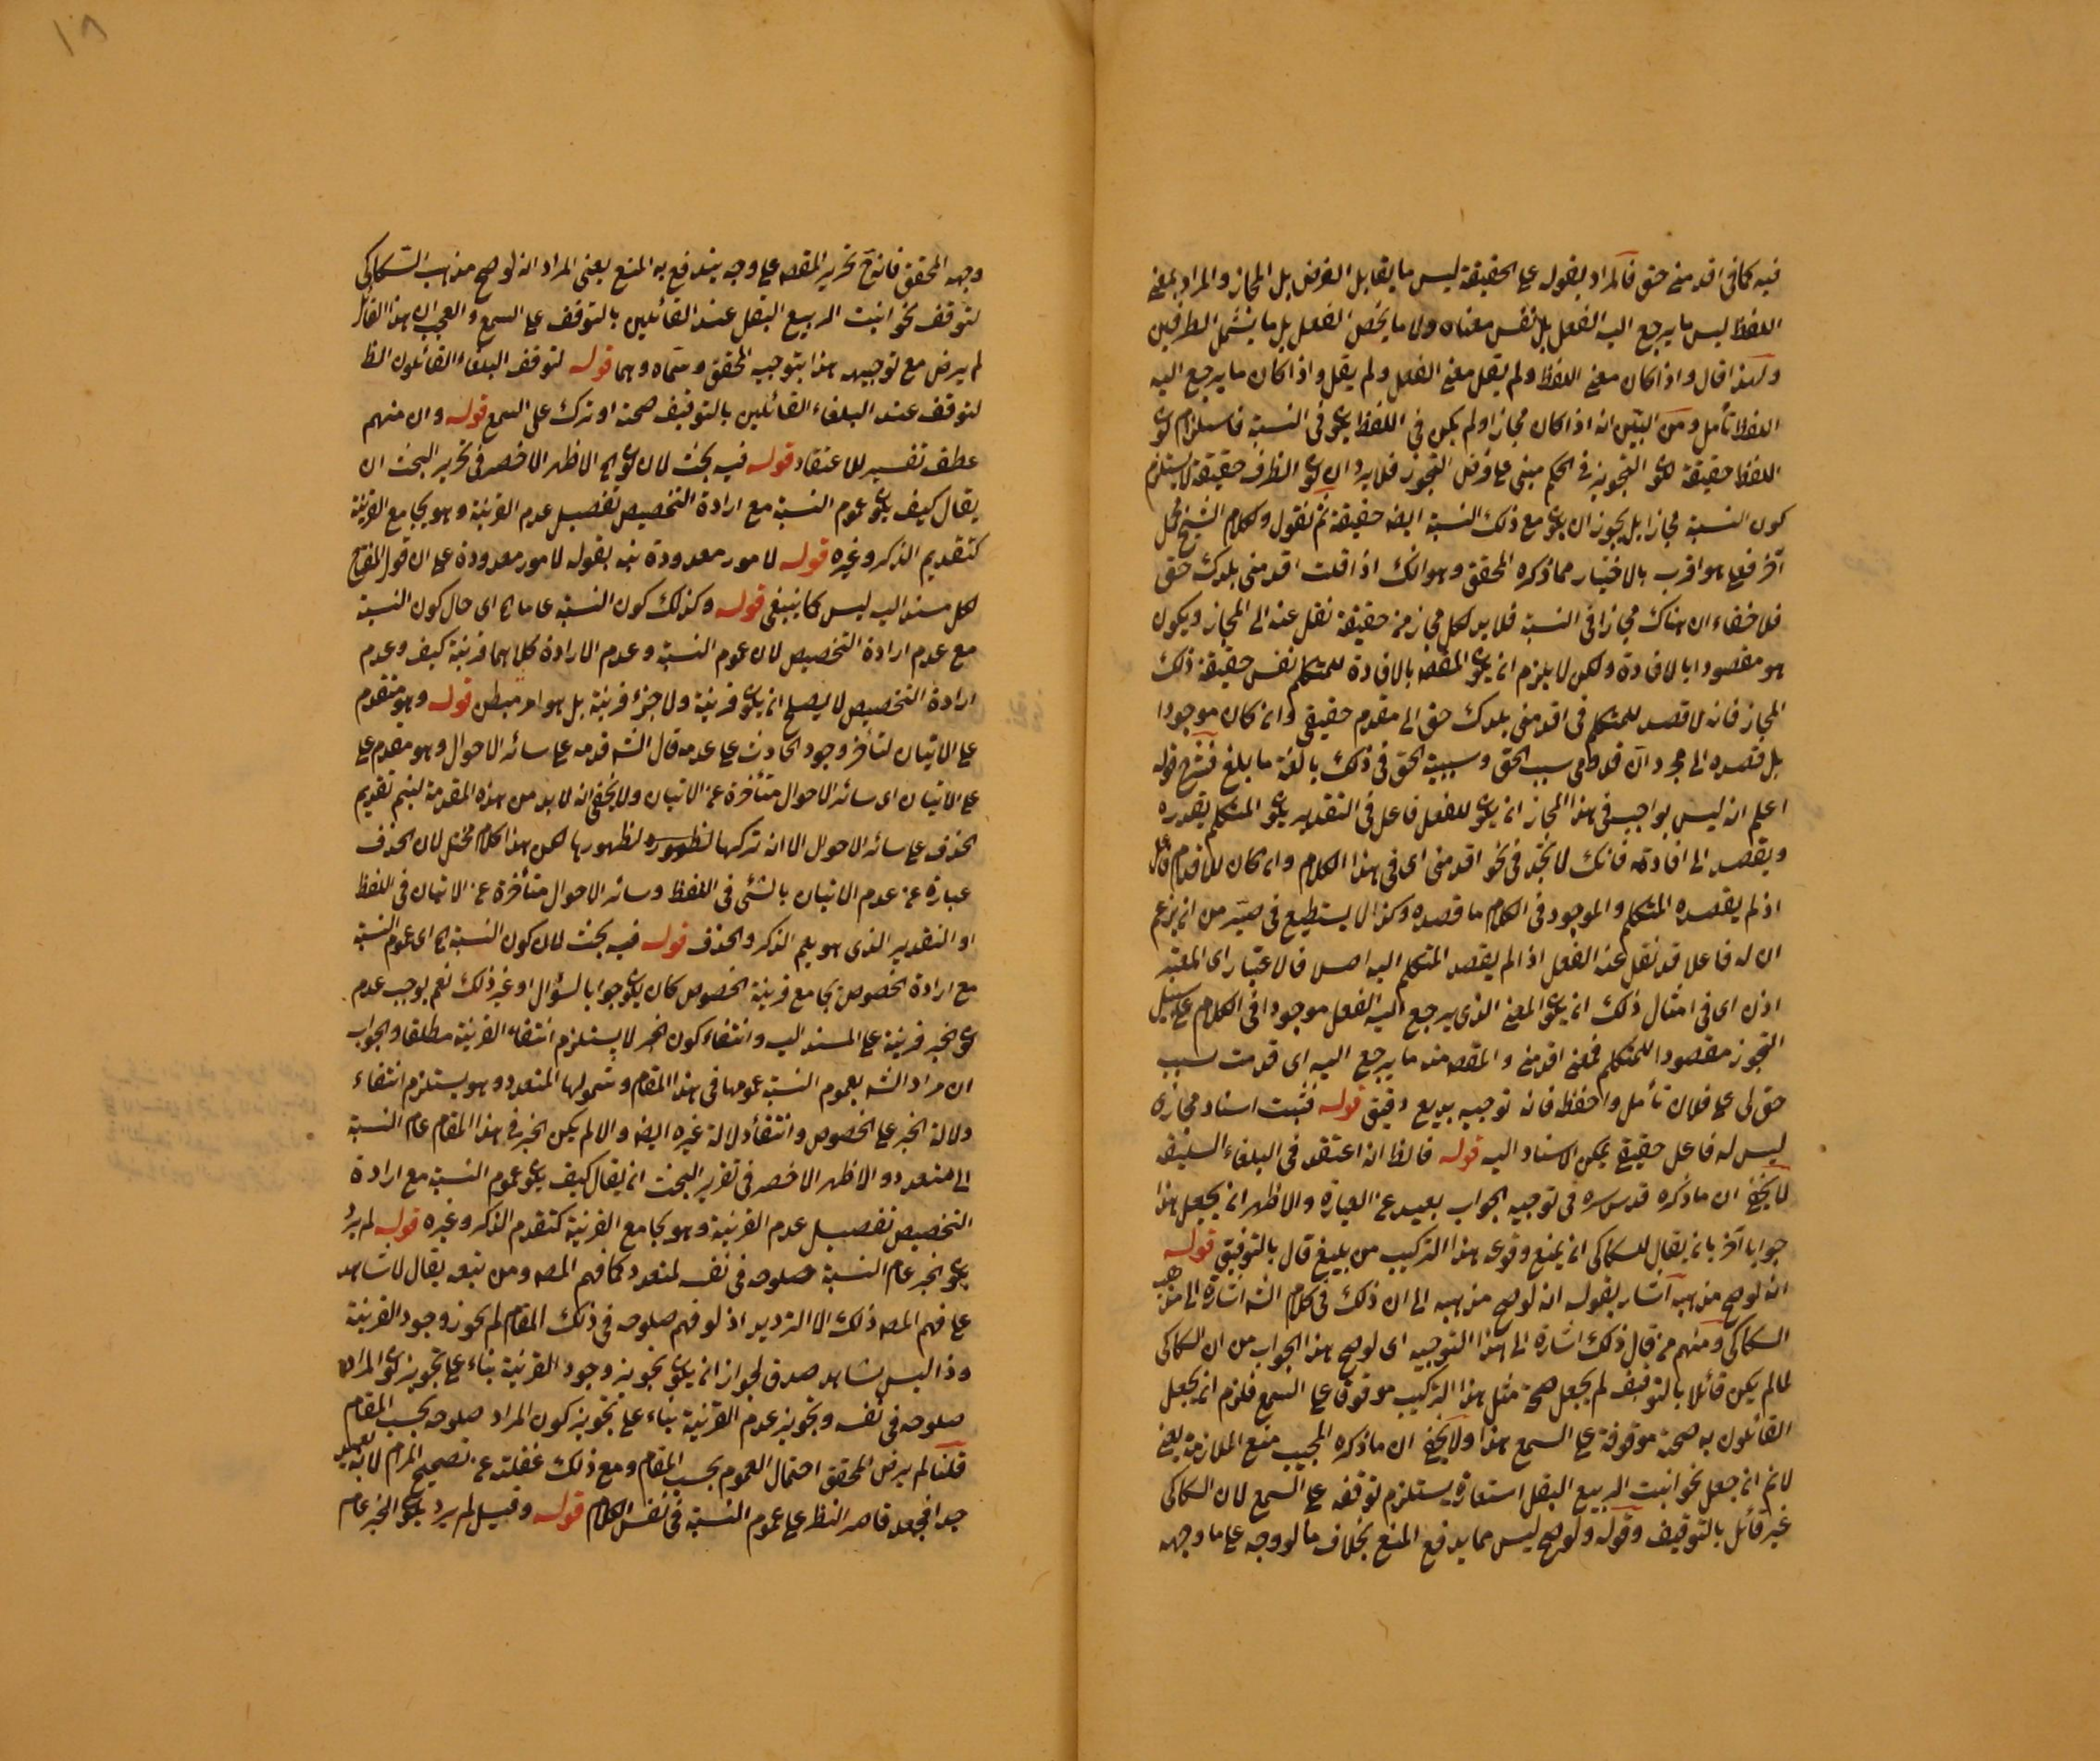 فيه كما فى اقدمنى حق فالمراد بقوله على الحقيقة ليس ما يقابل الفرض بل المجاز والمراد بمعنى
اللفظ ليس ما يرجع اليه الفعل بل نفس معناه ولا ما يخص الفعل بل ما يشمل الطرفين
ولهذا قال واذا كان معنى اللفظ ولم يقل معنى الفعل ولم يقل واذا كان ما يرجع اليه
اللفظ تأمل ومن البيّن انه اذا كان مجازا ولم يكن فى اللفظ يكون فى النسبة فاستلزام كون
اللفظ حقيقة لكون التجوز فى الحكم مبنى على فرض التجوز فلا يرد ان كون الطرف حقيقة لا يستلزم
كون النسبة مجازا بل يجوز ان يكون مع ذلك النسبة ايضا حقيقة ثم نقول ولكلام الشيخ محمل
آخر فعلى هو اقرب بالاختيار مما ذكره المحقق وهو انك اذا قلت اقدمنى بلدك حق
فلا خفاء ان هناك مجازا فى النسبة فلا بد لكل مجاز من حقيقة نقل عنه الى المجاز ويكون
هو مقصودا بالافادة ولكن لا يلزم ان يكون المقصد بالافادة للمتكلم نفس حقيقة ذلك
المجاز فانه لا قصد للمتكلم فى اقدمنى بلدك حق الى مقدم حقيقى وان كان موجودا
بل قصده الى مجرد ان قدومى سبب الحق وسببية الحق فى ذلك بالغة ما بلغ فشرح قوله
اعلم انه ليس بواجب فى هذا المجاز ان يكون للفعل فاعل فى التقدير يكون المتكلم يقدره
ويقصد الى افادته فانك لا تجد فى نحو اقدمنى اى فى هذا الكلام وان كان للاقدام فاعل
اذ لم يقصده المتكلم والموجود فى الكلام ما قصده وكذا لا يستطيع فى صيّر من ان يزعم
ان له فاعلا قد نقل عنه الفعل اذا لم يقصد المتكلم اليه اصلا فالاعتبار اى المعتبر
اذن اى فى امثال ذلك ان يكون المعنى الذى يرجع اليه الفعل موجودا فى الكلام على سبيل
التجوز مقصودا للمتكلم فمعنى اقدمنى والمقصد منه ما يرجع اليه اى قدمت بسبب
حق لى على فلان تأمل واحفظ فانه توجيه بديع دقيق قوله فثبت اسناد مجازى
ليس له فاعل حقيقى يمكن الاسناد اليه قوله فالظ انه اعتقد فى البلغاء السليقه
لا يخفى ان ما ذكره قدس سره فى توجيه الجواب بعيد عن العبارة والاظهر ان يجعل هذا
جوابا آخر بان يقال للسكاكى ان يمنع وقوع هذا التركيب من بليغ قال بالتوقيف قوله
انه لو صح مذهبه اشار بقوله انه لو صح مذهبه الى ان ذلك فى كلام الشه اشارة الى مذهب
السكاكى ومنهم من قال ذلك اشارة الى هذا التوجيه اى لو صح هذا الجواب من ان السكاكى
لما لم يكن قائلا بالتوقيف لم يجعل صحة مثل هذا التركيب موقوفا على السمع فلزم ان يجعل
القائلون به صحته موقوفة على السمع هذا ولا يخفى ان ما ذكره المجيب منع الملازمة يعنى
لا نم ان جعل نحو انبت الربيع البقل استعارة يستلزم توقفه على السمع لان السكاكى
غير قائل بالتوقيف وقوله ولو صح ليس مما يدفع المنع بخلاف ما لو وجه على ما وجهه
وجهه المحقق فانه ح تحرير المقصد على وجه يندفع به المنع يعنى المراد انه لو صح مذهب السكاكى
لتوقف نحو انبت الربيع البقل عند القائلين بالتوقف على السمع والعجب ان هذا القائل
لم يرض مع توجيهه هذا بتوجيه المحقق وسماه وهما قوله لتوقف البلغاء القائلون الظ
لتوقف عند البلغاء القائلين بالتوقيف صحته او تركه على السمع قوله وان منهم
عطف تفسير للاعتقاد قوله فيه بحث لان كون الخ الاظهر الاخصر فى تحرير البحث ان
يقال كيف يكون عموم النسبة مع ارادة التخصيص تفصيل عدم القرينة وهو يجامع القرينة
كتقديم الذكر وغيره قوله لامور معدودة نبه بقوله لامور معدودة على ان قول المفتاح
لكل مسند اليه ليس كما ينبغى قوله وكذلك كون النسبة عاما الخ اى حال كون النسبة
مع عدم ارادة التخصيص لان عموم النسبة وعدم الارادة كلاهما قرينة كيف وعدم
ارادة التخصيص لا يصلح ان يكون قرينة ولا جزء قرينة بل هو امر مبطن قوله وهو متقدم
على الاتيان لتأخر وجود الحادث على عدمه قال الشه قدمه على سائر الاحوال وهو مقدم على
على الاتيان اى سائر الاحوال متأخرة عن الاتيان ولا يخفى انه لا بد من هذه المقدمة ليتم تقديم
الحذف على سائر الاحوال الا انه تركها لظهورها لكن هذا الكلام مختل لان الحذف
عبارة عن عدم الاتيان بالشئ فى اللفظ وسائر الاحوال متأخرة عن الاتيان فى اللفظ
او التقدير الذى هو يعم الذكر والحذف قوله فيه بحث لان كون النسبة الخ اى عموم النسبة
مع ارادة الخصوص يجامع قرينة الخصوص كان يكون جوابا لسؤال او غير ذلك نعم يوجب عدم
كون الخبر قرينة على المسند اليه وانتفاء كون الخبر لا يستلزم انتفاء القرينة مطلقا والجواب
ان مراد الشه بعموم النسبة عمومها فى هذا المقام وشمولها المتعدد وهو يستلزم انتفاء
دلالة الخبر على الخصوص وانتفاء دلالة غيره ايضا والا لم يكن الخبر فى هذا المقام عام النسبة
الى متعدد والاظهر الاخصر فى تقرير البحث ان يقال كيف يكون عموم النسبة مع ارادة
التخصيص تفصيل عدم القرينة وهو يجامع القرينة كتقدم الذكر وغيره قوله لم يرد
بكون الخبر عام النسبة صلوحه فى نفسه لمتعدد كما فهم المصه ومن تبعه يقال لا شاهد
على فهم المصه ذلك الا الترديد اذ لو فهم صلوحه فى ذلك المقام لم يجوز وجود القرينة
وذا ليس بشاهد صدق لجواز ان يكون تجويز وجود القرينة بناء على تجويز كون المراد
صلوحه فى نفسه وتجويز عدم القرينة بناء على تجويز كون المراد صلوحه بحسب المقام
قلنا لم يرض المحقق احتمال العموم بحسب المقام ومع ذلك غفلته عن تصحيح المرام لانه بعيد
جدا فجعله قاصر النظر على عموم النسبة فى نفس الكلام قوله وقيل لم يرد بكون الخبر عام
١٨